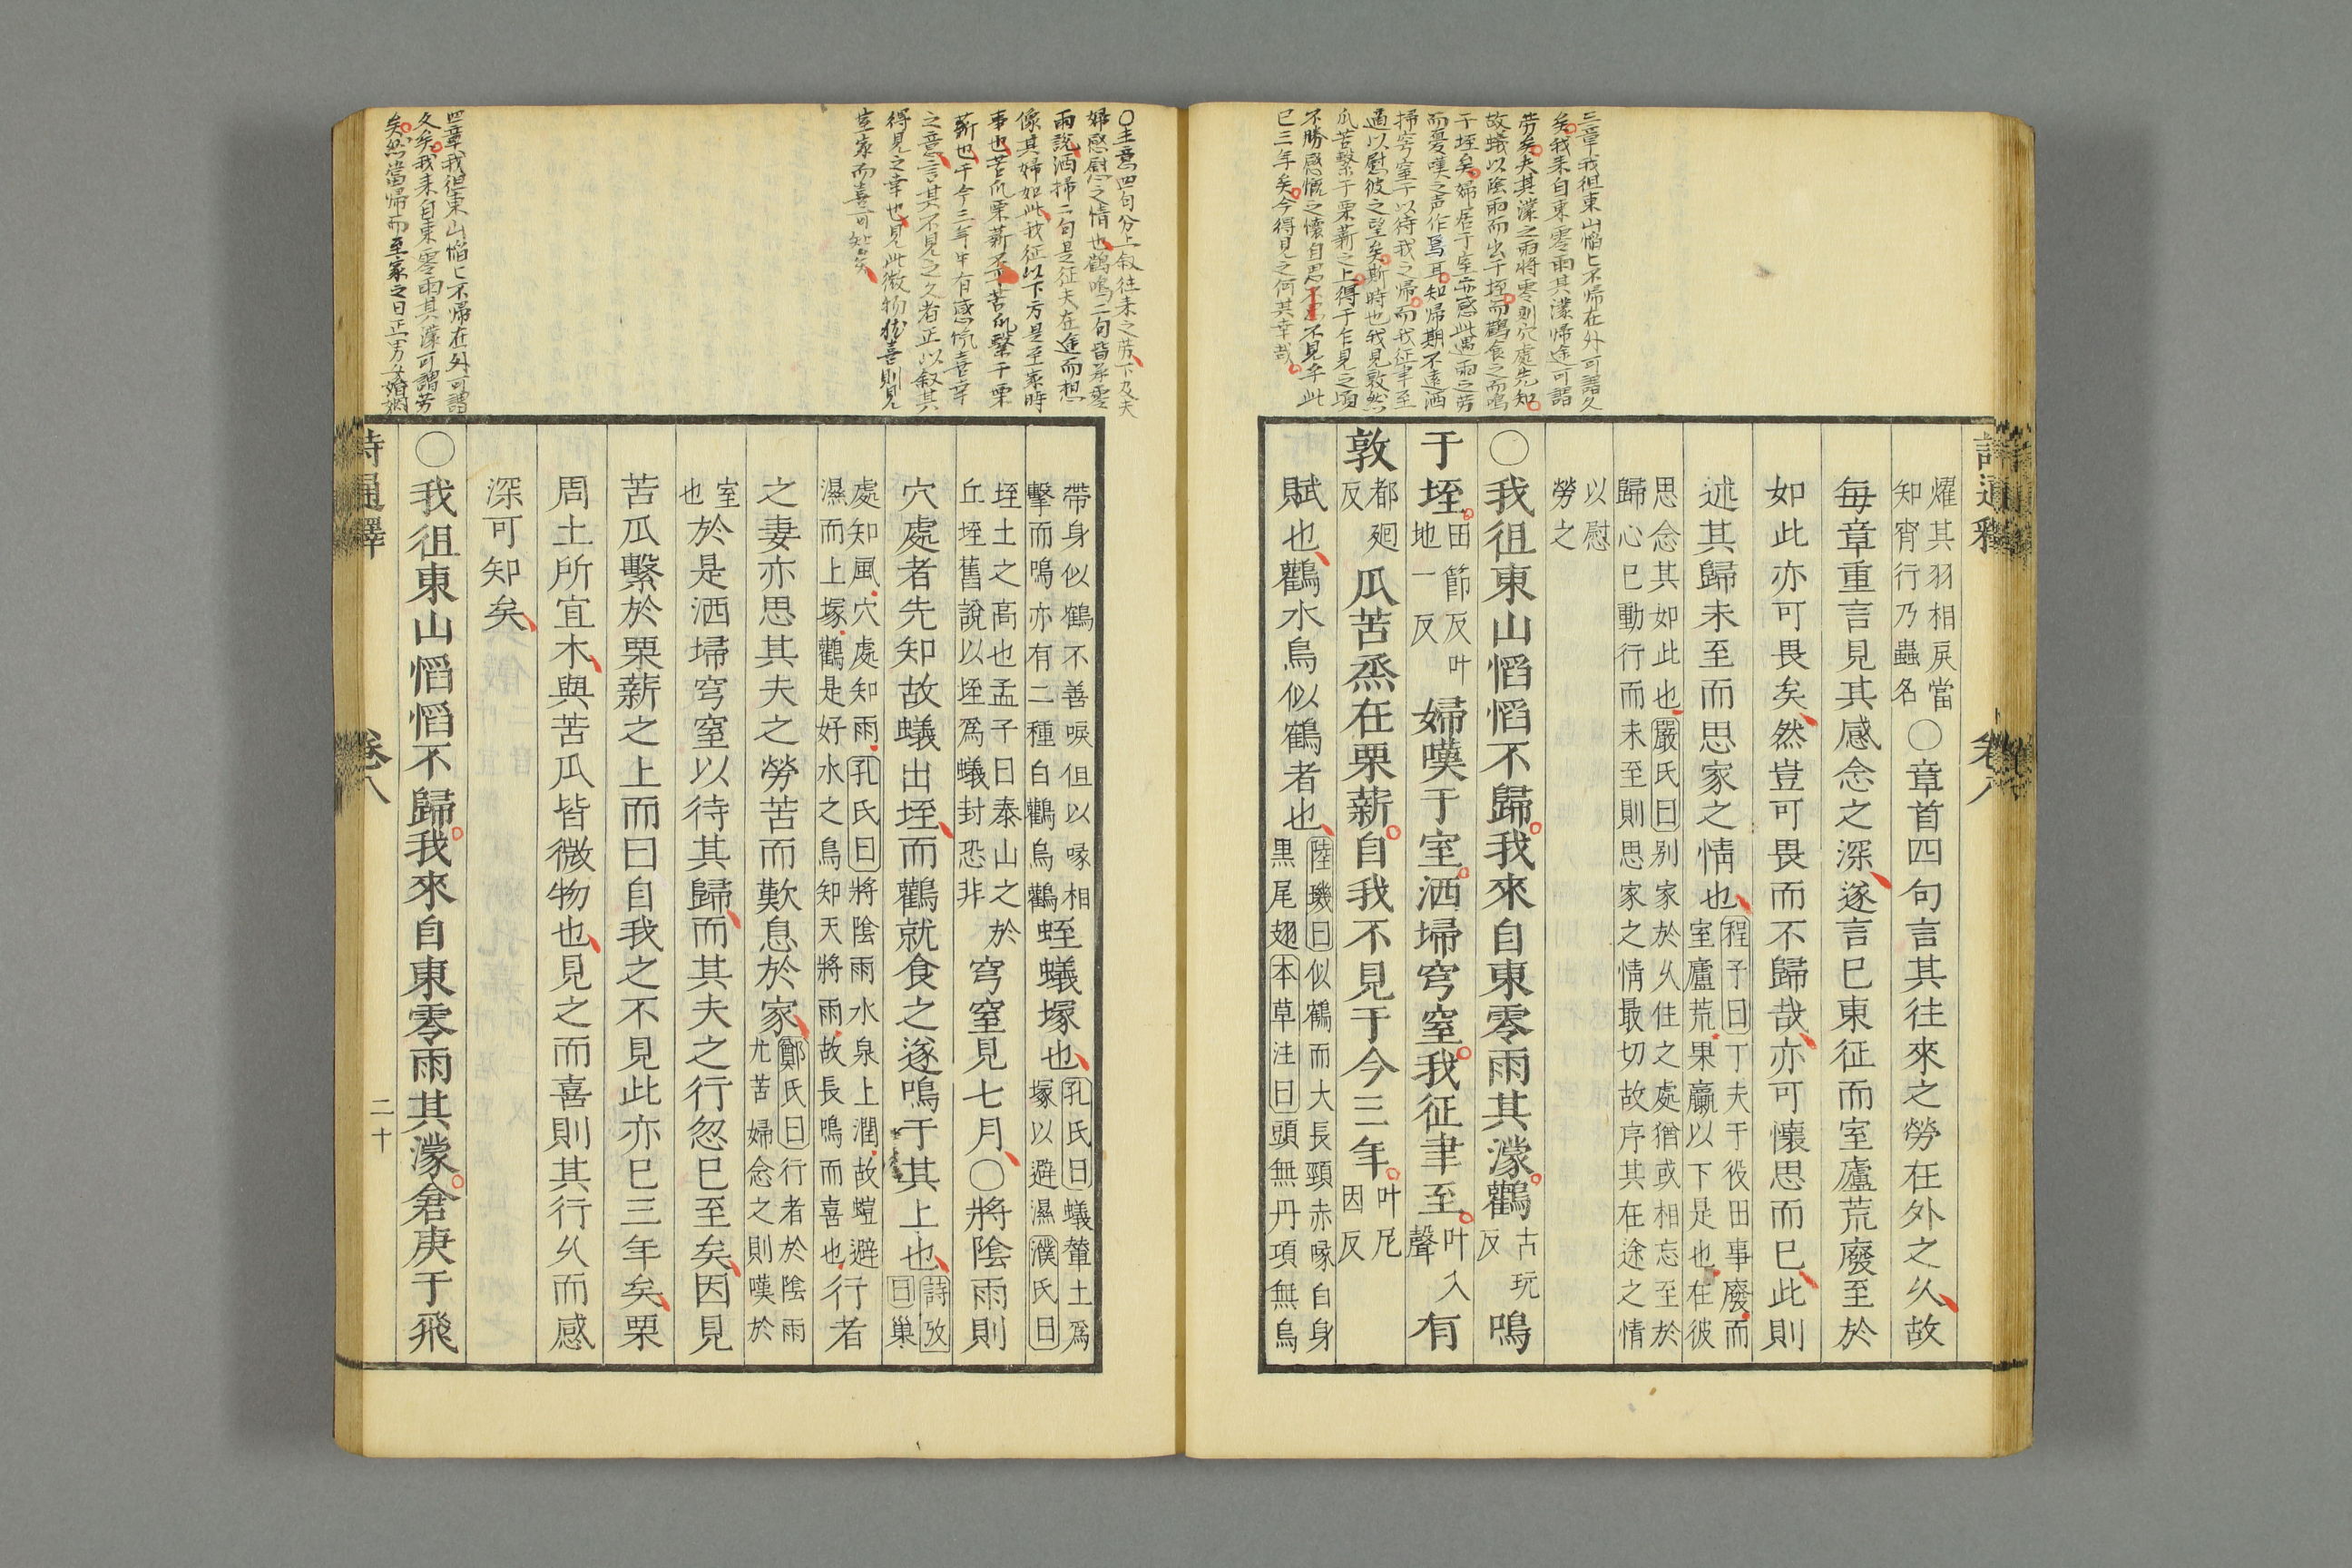 三章我徂東山慆匕不歸在外可謂久
矣我来自東零雨其濛歸途可謂
劳矣夫其濛之雨將零則穴處先知
故蟻以陰雨而出于垤而鸛食之而鳴
于垤矣婦居于室亦感此遇雨之劳
而憂嘆之声作焉耳知歸期不遠洒
掃穹室于以待我之歸而我征聿至
適以慰彼之望矣斯時也我見敦然
瓜苦繫于栗薪之上得于乍見之頃
不勝感慨之懷自思不見乎此
已三年矣今得見之何其幸哉
詩通釋
卷八
燿其羽相戾當
知宵行乃蟲名
○章首四句言其往來之勞在外之乆故
毎章重言見其感念之深遂言巳東征而室廬荒廢至於
如此亦可畏矣然豈可畏而不歸哉亦可懷思而巳此則
述其歸未至而思家之情也
程子曰丁夫于役田事廢而
室廬荒果臝以下是也在彼
思念其如此也嚴氏曰别家於乆住之處猶或相忘至於
歸心巳動行而未至則思家之情最切故序其在途之情
以慰
勞之
○我徂東山慆慆不歸我來自東零雨其濛鸛
古玩
反
鳴
于垤
田節反叶
地一反
婦嘆于室洒埽穹窒我征聿至
叶入
聲
有
敦
都廻
反
瓜苦烝在栗薪自我不見于今三年
叶尼
因反
賦也鸛水鳥似鶴者也
陸璣曰似鶴而大長頸赤喙自身
黒尾翅本草注曰頭無丹項無烏
○主意四句分上叙往来之劳下及夫
婦感慰之情也鸛鳴二句皆承零
雨說洒掃二句是征夫在途而想
像其婦如此我征以下方是至家時
事也苦瓜栗薪不平苦瓜繫于栗
薪也于今三年中有感慨喜幸
之意言其不見之久者正以叙其
得見之幸也見此微物猶喜則見
室家而喜可知矣
四章我徂東山慆匕不歸在外可謂
久矣我来自東零雨其濛可謂劳
矣然當歸而至家之日正男女婚姻
帶身似鶴不善唳但以喙相
擊而鳴亦有二種白鸛烏鸛
蛭蟻塚也
孔氏曰蟻輦土爲
塚以避濕濮氏曰
垤土之高也孟子曰泰山之於
丘垤舊說以垤爲蟻封恐非
穹窒見七月○將陰雨則
穴處者先知故蟻出垤而鸛就食之遂鳴于其上也
詩攷
曰巢
處知風穴處知雨孔氏曰將陰雨水泉上潤故螘避
濕而上塚鸛是好水之鳥知天將雨故長鳴而喜也
行者
之妻亦思其夫之勞苦而歎息於家
鄭氏曰行者於陰雨
尤苦婦念之則嘆於
室
也
於是洒埽穹窒以待其歸而其夫之行忽巳至矣因見
苦瓜繫於栗薪之上而曰自我之不見此亦巳三年矣栗
周土所宜木與苦瓜皆微物也見之而喜則其行乆而感
深可知矣
○我徂東山慆慆不歸我來自東零雨其濛倉庚于飛
詩通釋
卷八
二十